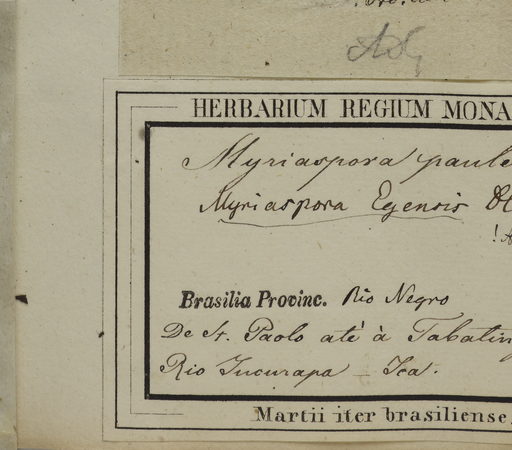 HERBARIUM REGIUM MONA
Myriaspora paule
Myriaspora Egensis
Brasilia Provinc. Rio Negro
De St. Paolo até à Tabating
Rio Jucurapa - Ica.
Martii iter brasiliense